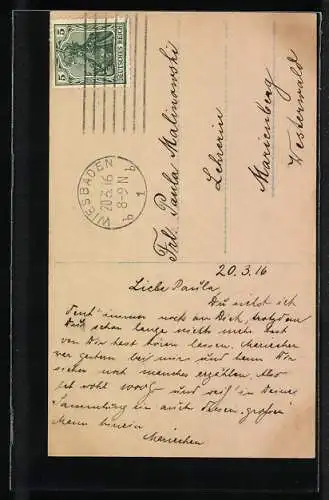 5 DEUTSCHES REICH 5
WIESBADEN
20.3.16
8-9 N
b 1 b
Frl. Paula Malinowski
Lehrerin
Marienberg
Westerwald
20.3.16
Liebe Paula,
Du siehst ich
denk' immer noch an Dich, trotzdem
Du schon lange nichts mehr hast
von Dir hast hören lassen. Mariechen
war gestern bei mir und kann Dir
sicher noch manches erzählen. Also
leb wohl und in Deine
Sammlung ein auch diesen großen
Mann hinein
Mariechen